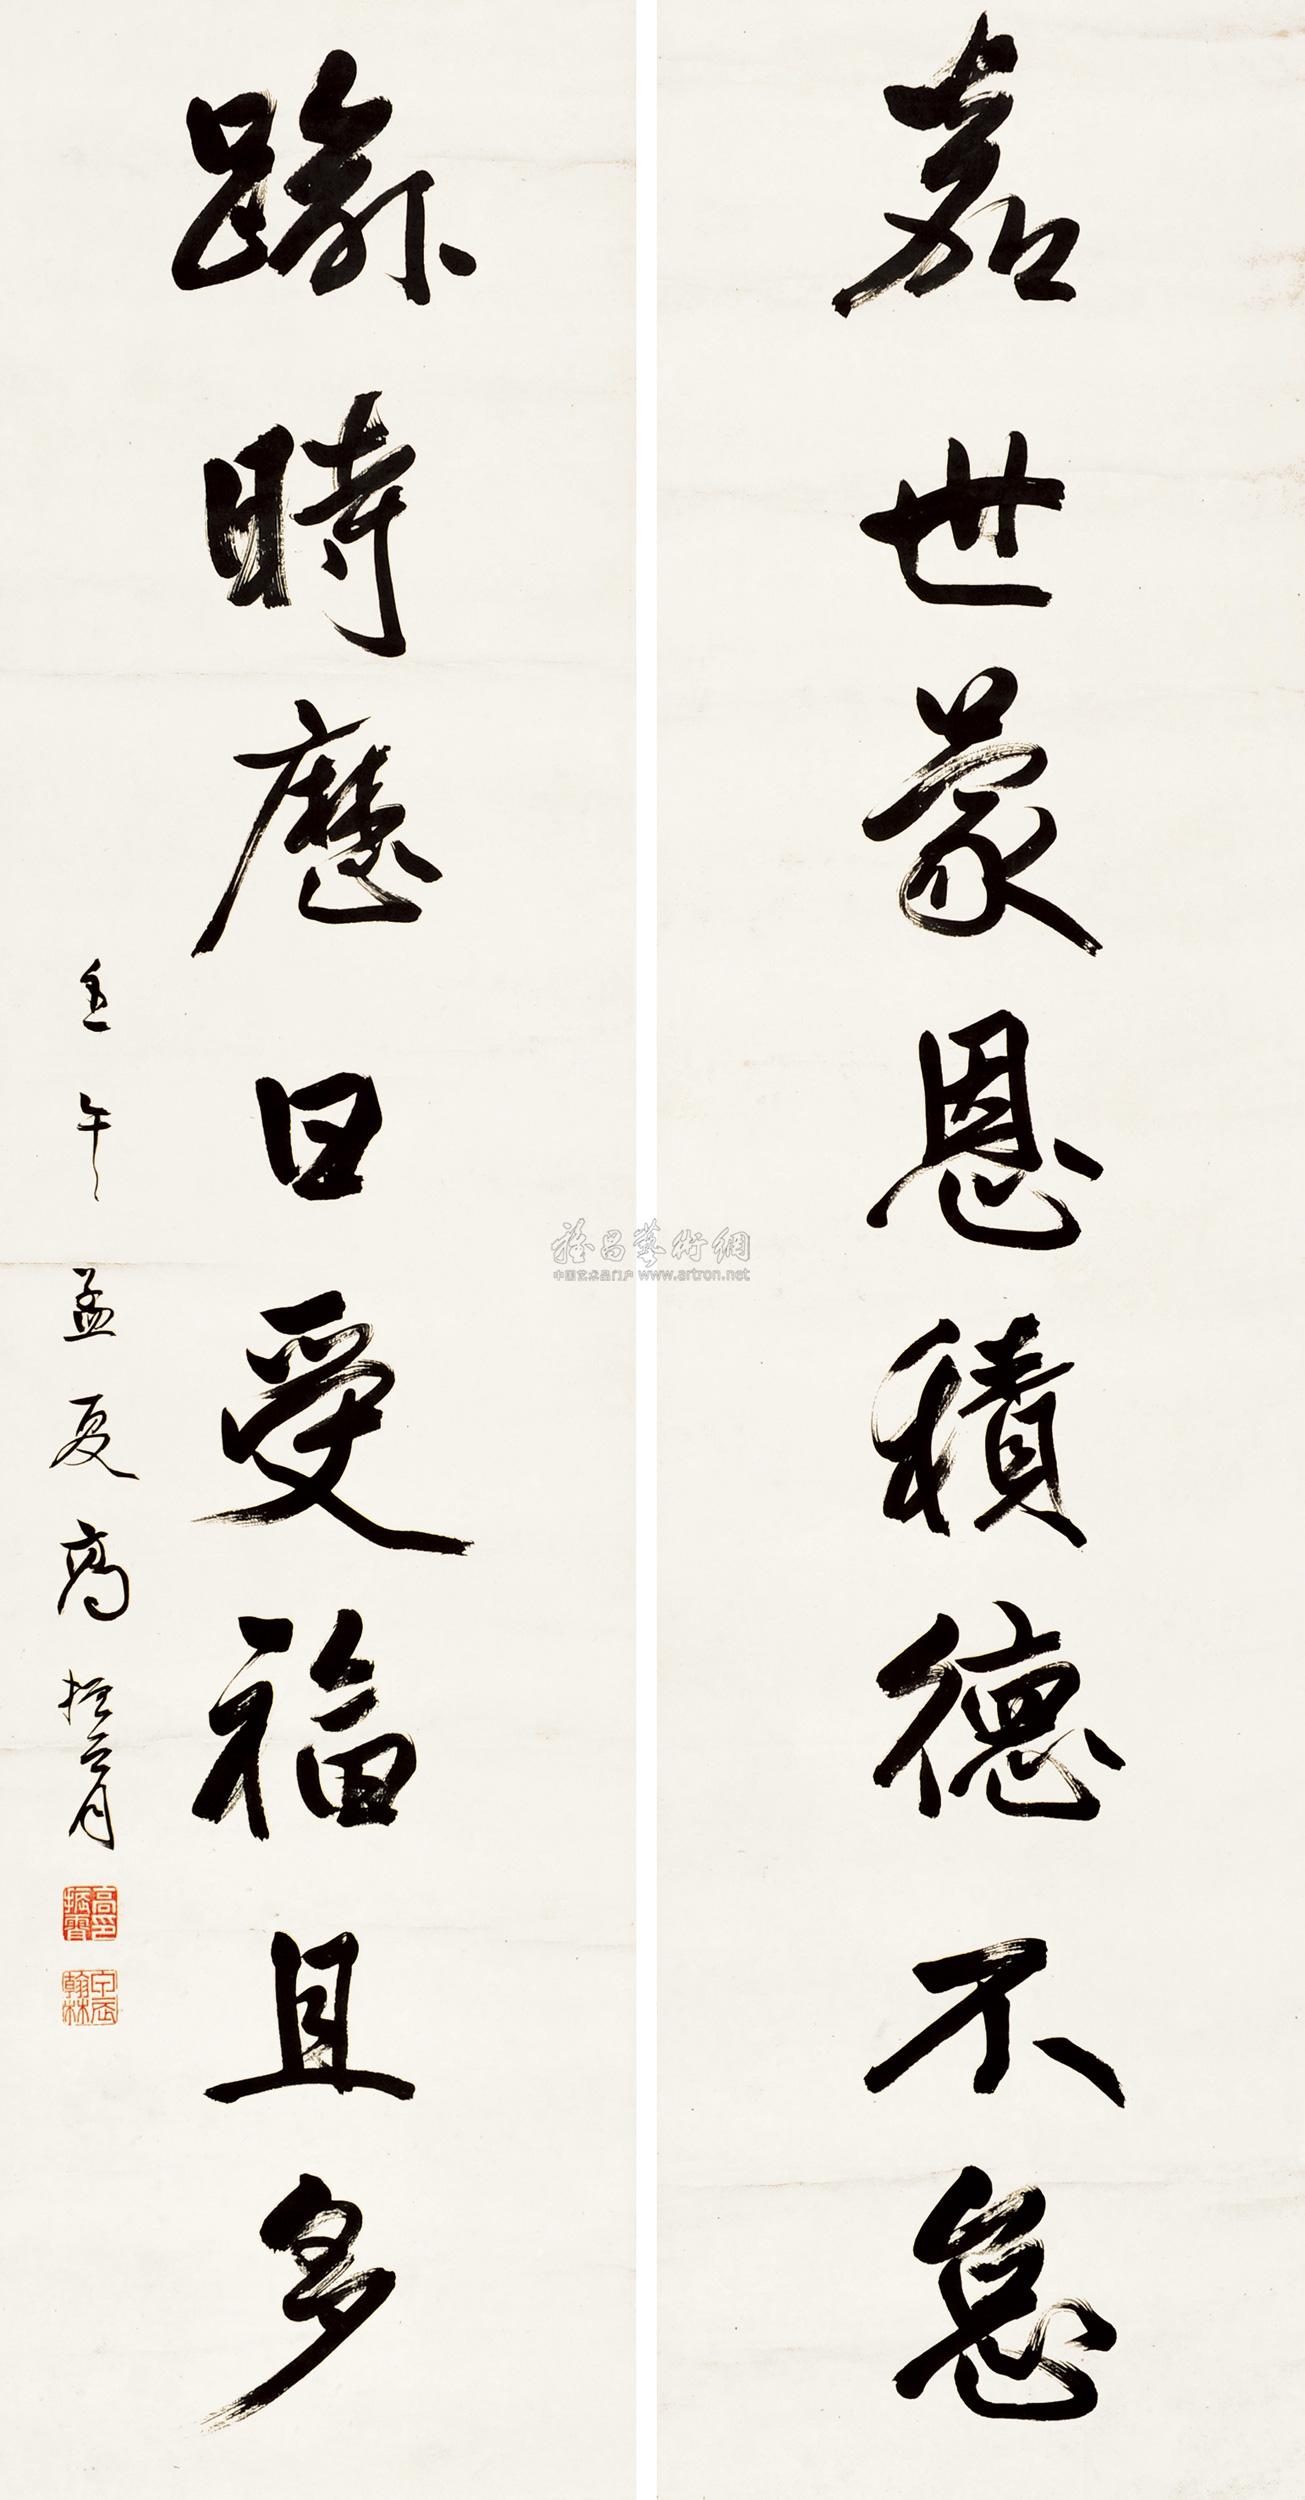 嘉世蒙恩積德不怠
踰時歷日受福且多
壬午孟夏高振霄
高振霄印
翰林
雅昌藝術網
中国艺术品门户 www.artron.net